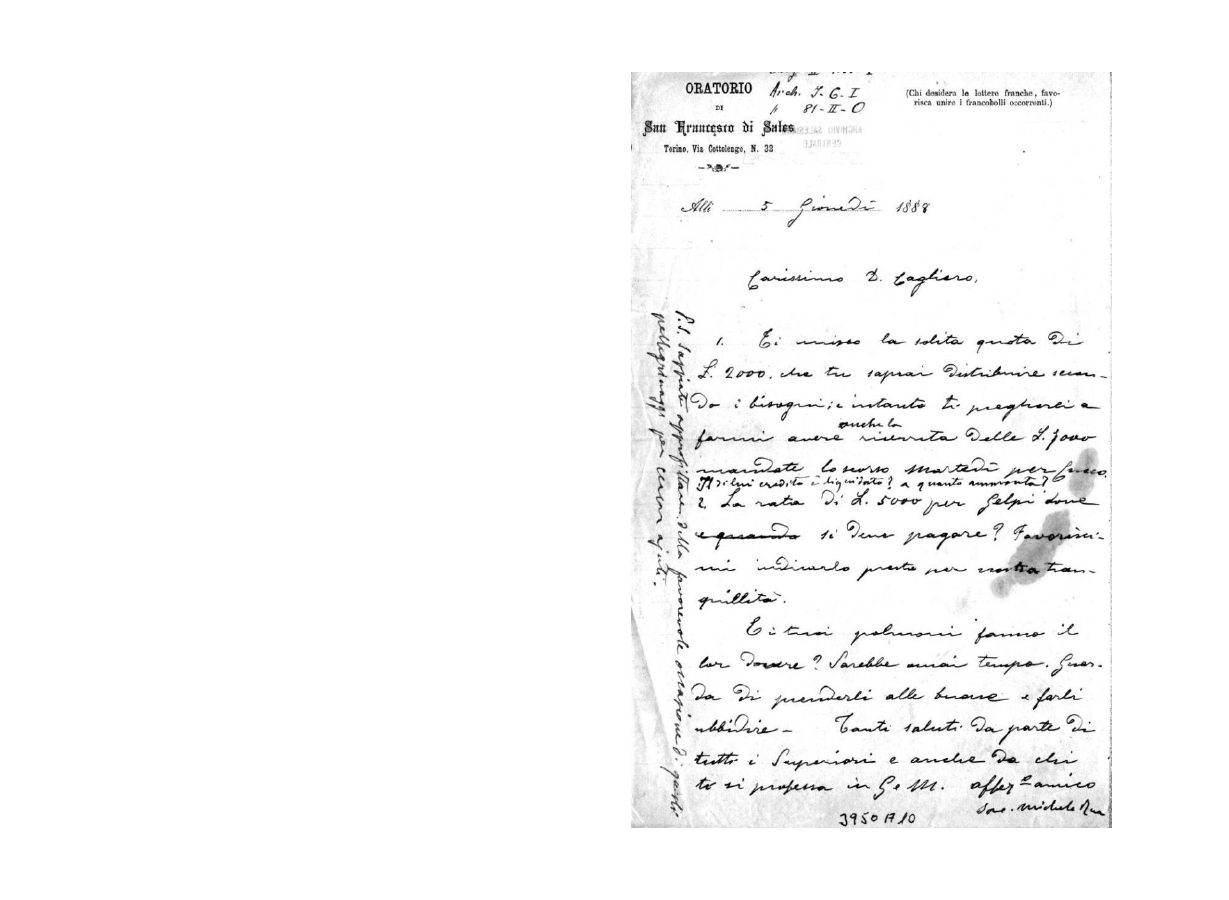 ORATORIO
DI
San Francesco di Sales
Torino, Via Cottolengo, N. 32
Arch. I. G. I
81-II-O
ARCHIVIO SALESIANO
CENTRALE
(Chi desidera le lettere franche, favo-
risca unire i francobolli occorrenti.)
Alli 5 Giovedì 1888
Carissimo D. Cagliero,
1. Ti invio la solita quota di
L. 2000. che tu saprai distribuire secon-
do i bisogni; e intanto ti pregherei a
farmi avere anche la ricevuta delle L. 3000
mandate lo scorso Martedì per
Il di lui credito è liquidato? a quanto ammonta?
2. La rata di L. 5000 per Gelpi dove
e quando si deve pagare? Favorisci-
mi indicarlo presto per nostra tran-
quillità.
E i tuoi polmoni fanno il
lor dovere? Sarebbe omai tempo. Guar-
da di prenderli alle buone e farli
ubbidire - Tanti saluti da parte di
tutti i Superiori e anche da chi
ti si professa in G e M. affez.º amico
Sac. Michele Rua
P.S. Sappiate approfittare della favorevole occasione di questi
pellegrinaggi per cercar ajuti.
3950 A 10